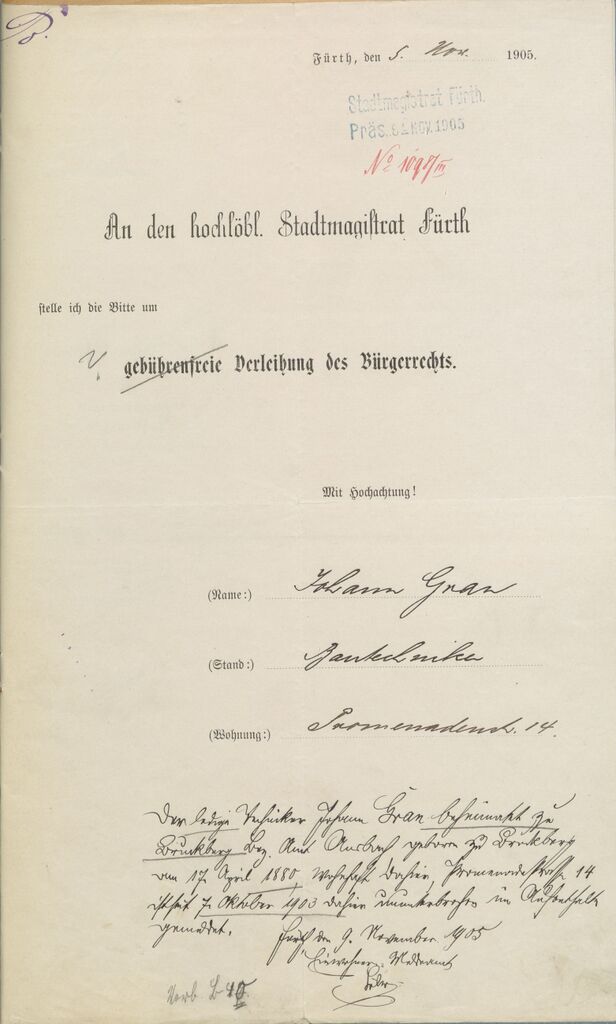 Fürth, den 5. Nov. 1905.
Stadtmagistrat Fürth.
Präs. NOV. 1905
No
An den hochlöbl. Stadtmagistrat Fürth
stelle ich die Bitte um
gebührenfreie Verleihung des Bürgerrechts.
Mit Hochachtung!
(Name:) Johann Grau
(Stand:) Bautechniker
(Wohnung:) Promenadenstr. 14.
Der ledige Techniker Johann Grau beheimatet zu
Bruckberg Bez. Amt Ansbach geboren zu Bruckberg
am 17. April 1880 wohnhaft dahier, Promenadestraße 14
ist seit 7. Oktober 1903 dahier ununterbrochen im Aufenthalt
gemeldet.
Fürth den 9. November 1905
Einwohner-Meldeamt